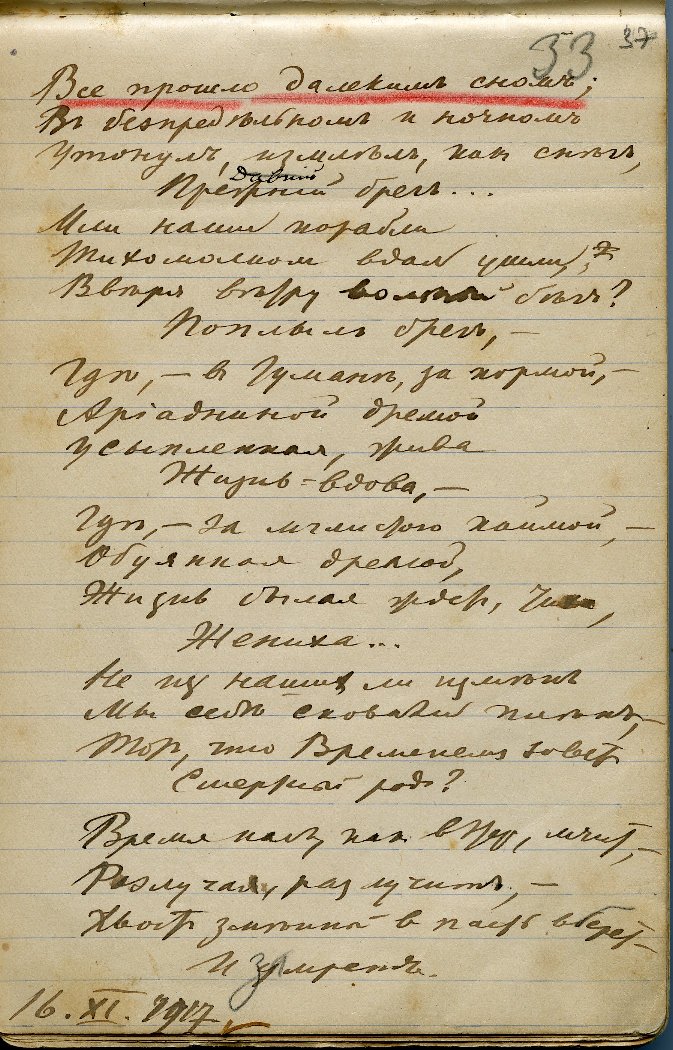 33 37
Все прошло далекимъ сномъ;
Въ безпредѣльномъ и ночномъ
Утонулъ, измлѣлъ, какъ снѣгъ,
Давній
Прежній брегъ...
Или наши корабли
Тихомолком вдаль ушли,
Ввѣря вѣтру вольный бѣгъ?
Поплылъ брегъ,—
Гдѣ,— в туманѣ, за кормой,—
Аріадниной дремой
Усыпленная, жива
Жизнь-вдова,—
Гдѣ,— за мглистою каймой,—
Обуянная дремой,
Жизнь былая ждет,
Жениха...
Не из наших ли измѣнъ
Мы себѣ сковали плѣнъ,—
Тот, что Временемъ зовет
Смертный род?
Время насъ, как вѣтр, мчит,—
Разлучая, разлучитъ,—
Хвост змѣиный в пасть вберет—
И умретъ.
16. XI. 1917